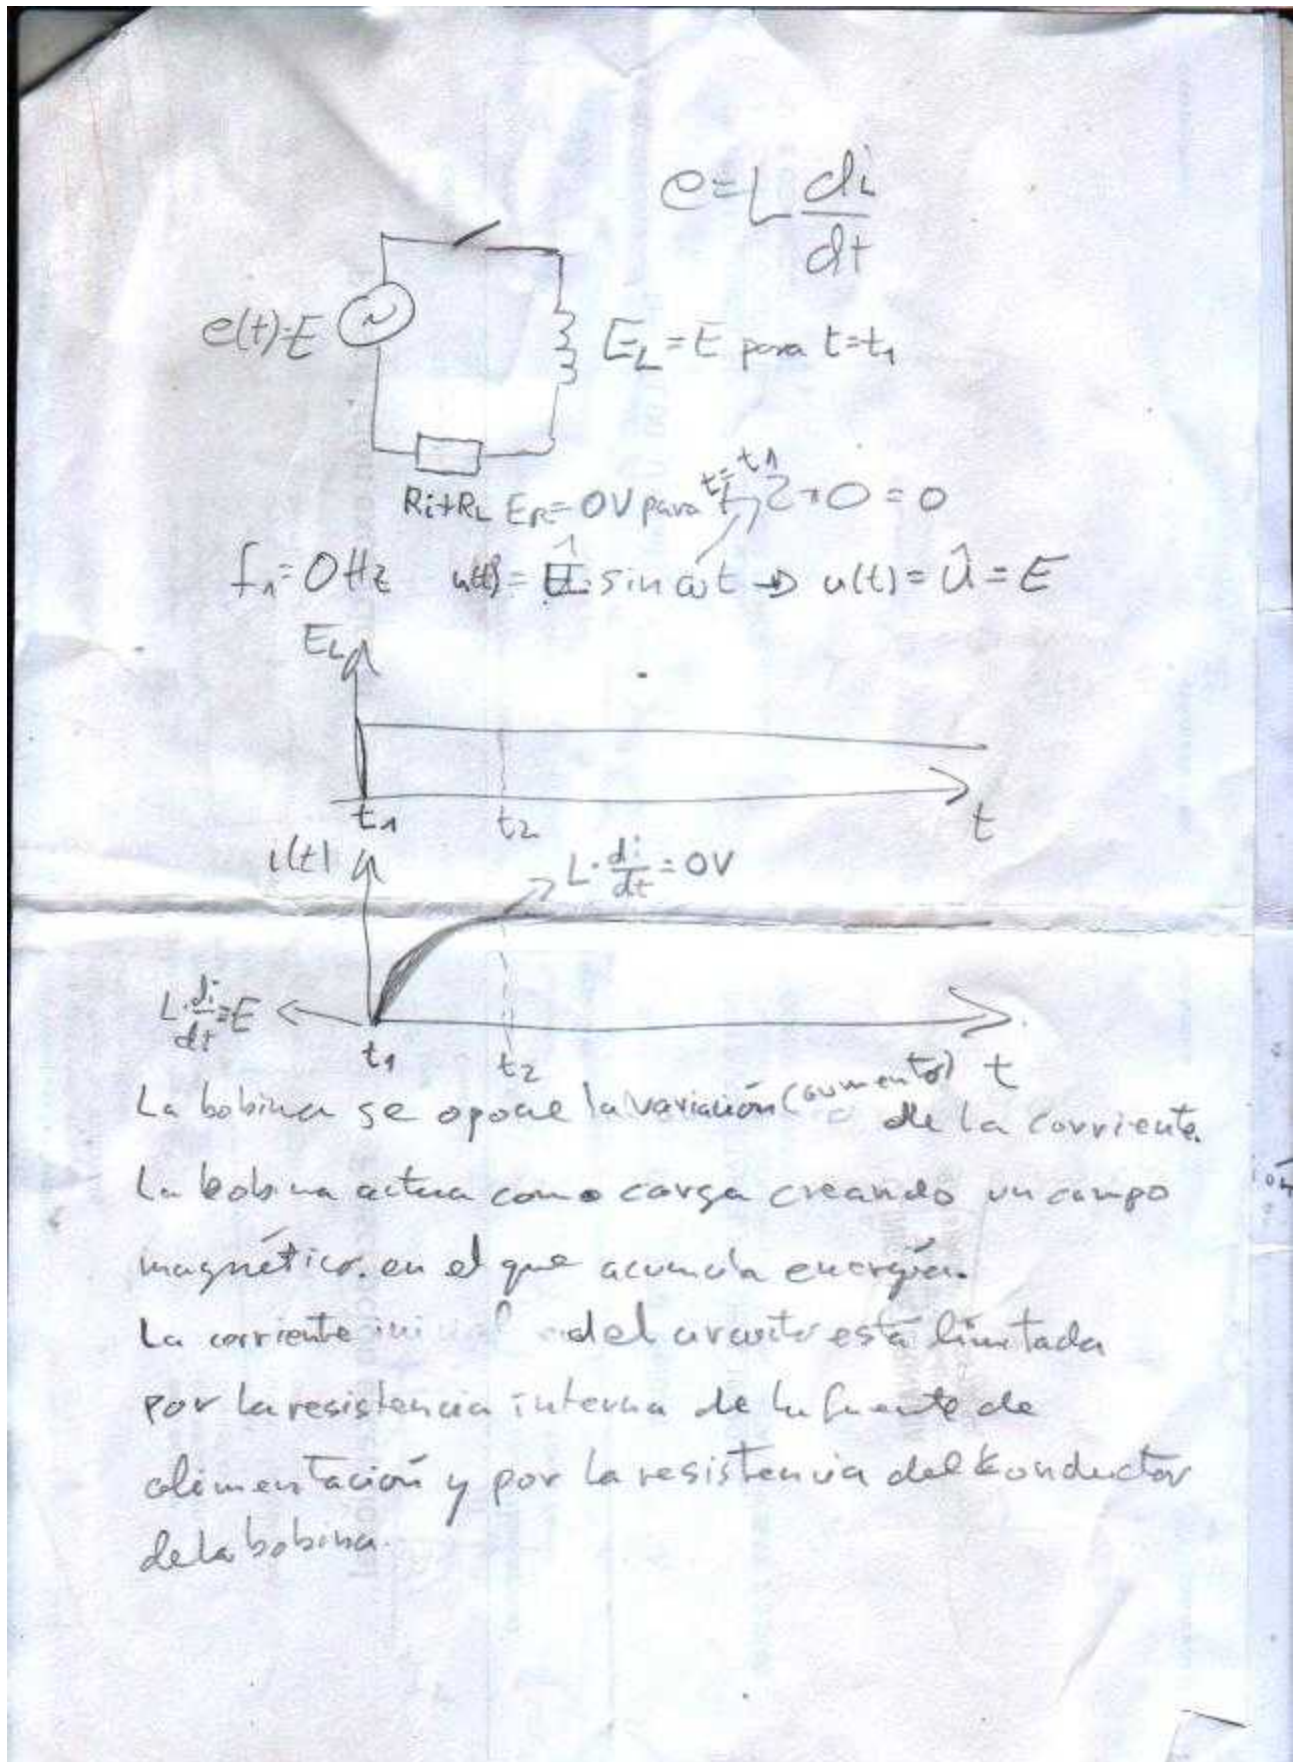 e=L di/dt
e(t)=E
E_L=E para t=t₁
t=t₁
Ri+R_L E_R=0V para 2π0=0
f₁=0Hz u(t)=Û·sin ωt → u(t)=Û=E
E_L
t₁ t₂ t
i(t)
L·di/dt=0V
L·di/dt=E
t₁ t₂ t
La bobina se opone la variación (aumento) de la corriente.
La bobina actua como carga creando un campo
magnético. en el que acumula energía.
La corriente inicial del circuito está limitada
por la resistencia interna de la fuente de
alimentación y por la resistencia del konductor
de la bobina.